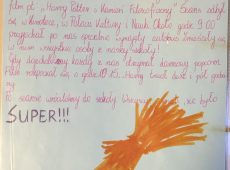 film pt. „Harry Potter i Kamień Filozoficzny". Seans odbył
się w kwietniu, w Pałacu Kultury i Nauki. Około godz. 9.00
przyjechał po nas specjalnie wynajęty autokar. Zmieściły się
w nim wszystkie osoby z naszej szkoły!
Gdy dojechaliśmy każdy z nas otrzymał darmowy popcorn.
Film rozpoczął się o godz. 10.15. Harry trwał dwie i pół godziny.
Po seansie wróciliśmy do szkoły. Wszyscy, że było
SUPER!!!